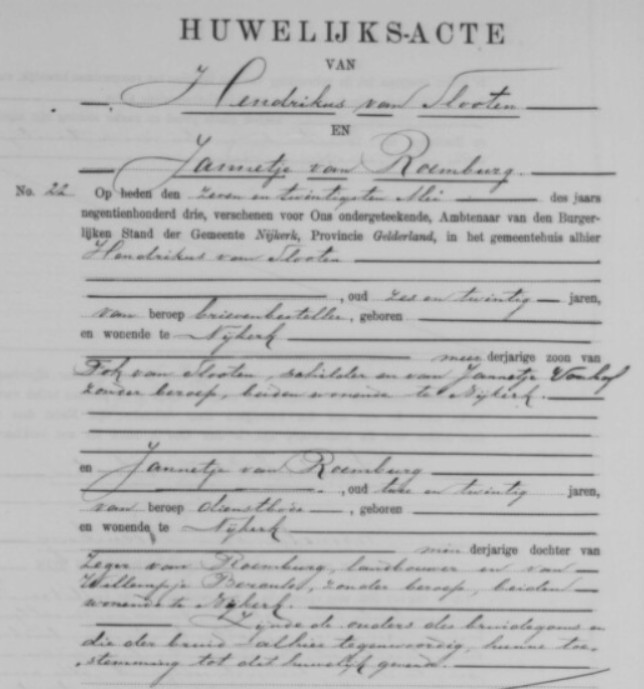 HUWELIJKS-ACTE
VAN
Hendrikus van Slooten
EN
Jannetje van Roemburg.
No. 22 Op heden den zeven en twintigsten Mei des jaars
negentienhonderd drie, verschenen voor Ons ondergeteekende, Ambtenaar van den Burger-
lijken Stand der Gemeente Nijkerk, Provincie Gelderland, in het gemeentehuis alhier
Hendrikus van Slooten
, oud zes en twintig jaren,
van beroep brievenbesteller, geboren
en wonende te Nijkerk
meerderjarige zoon van
van Slooten, schilder en van Jannetje Vonhof
zonder beroep, beiden wonende te Nijkerk.
en Jannetje van Roemburg
, oud twee en twintig jaren,
van beroep dienstbode, geboren
en wonende te Nijkerk
minderjarige dochter van
Zeger van Roemburg, landbouwer en van
Willempje zonder beroep, beiden
wonende te Nijkerk.
Zijnde de ouders des bruidegoms en
die der bruid alhier tegenwoordig, hunne toe-
stemming tot dit huwelijk gevend.